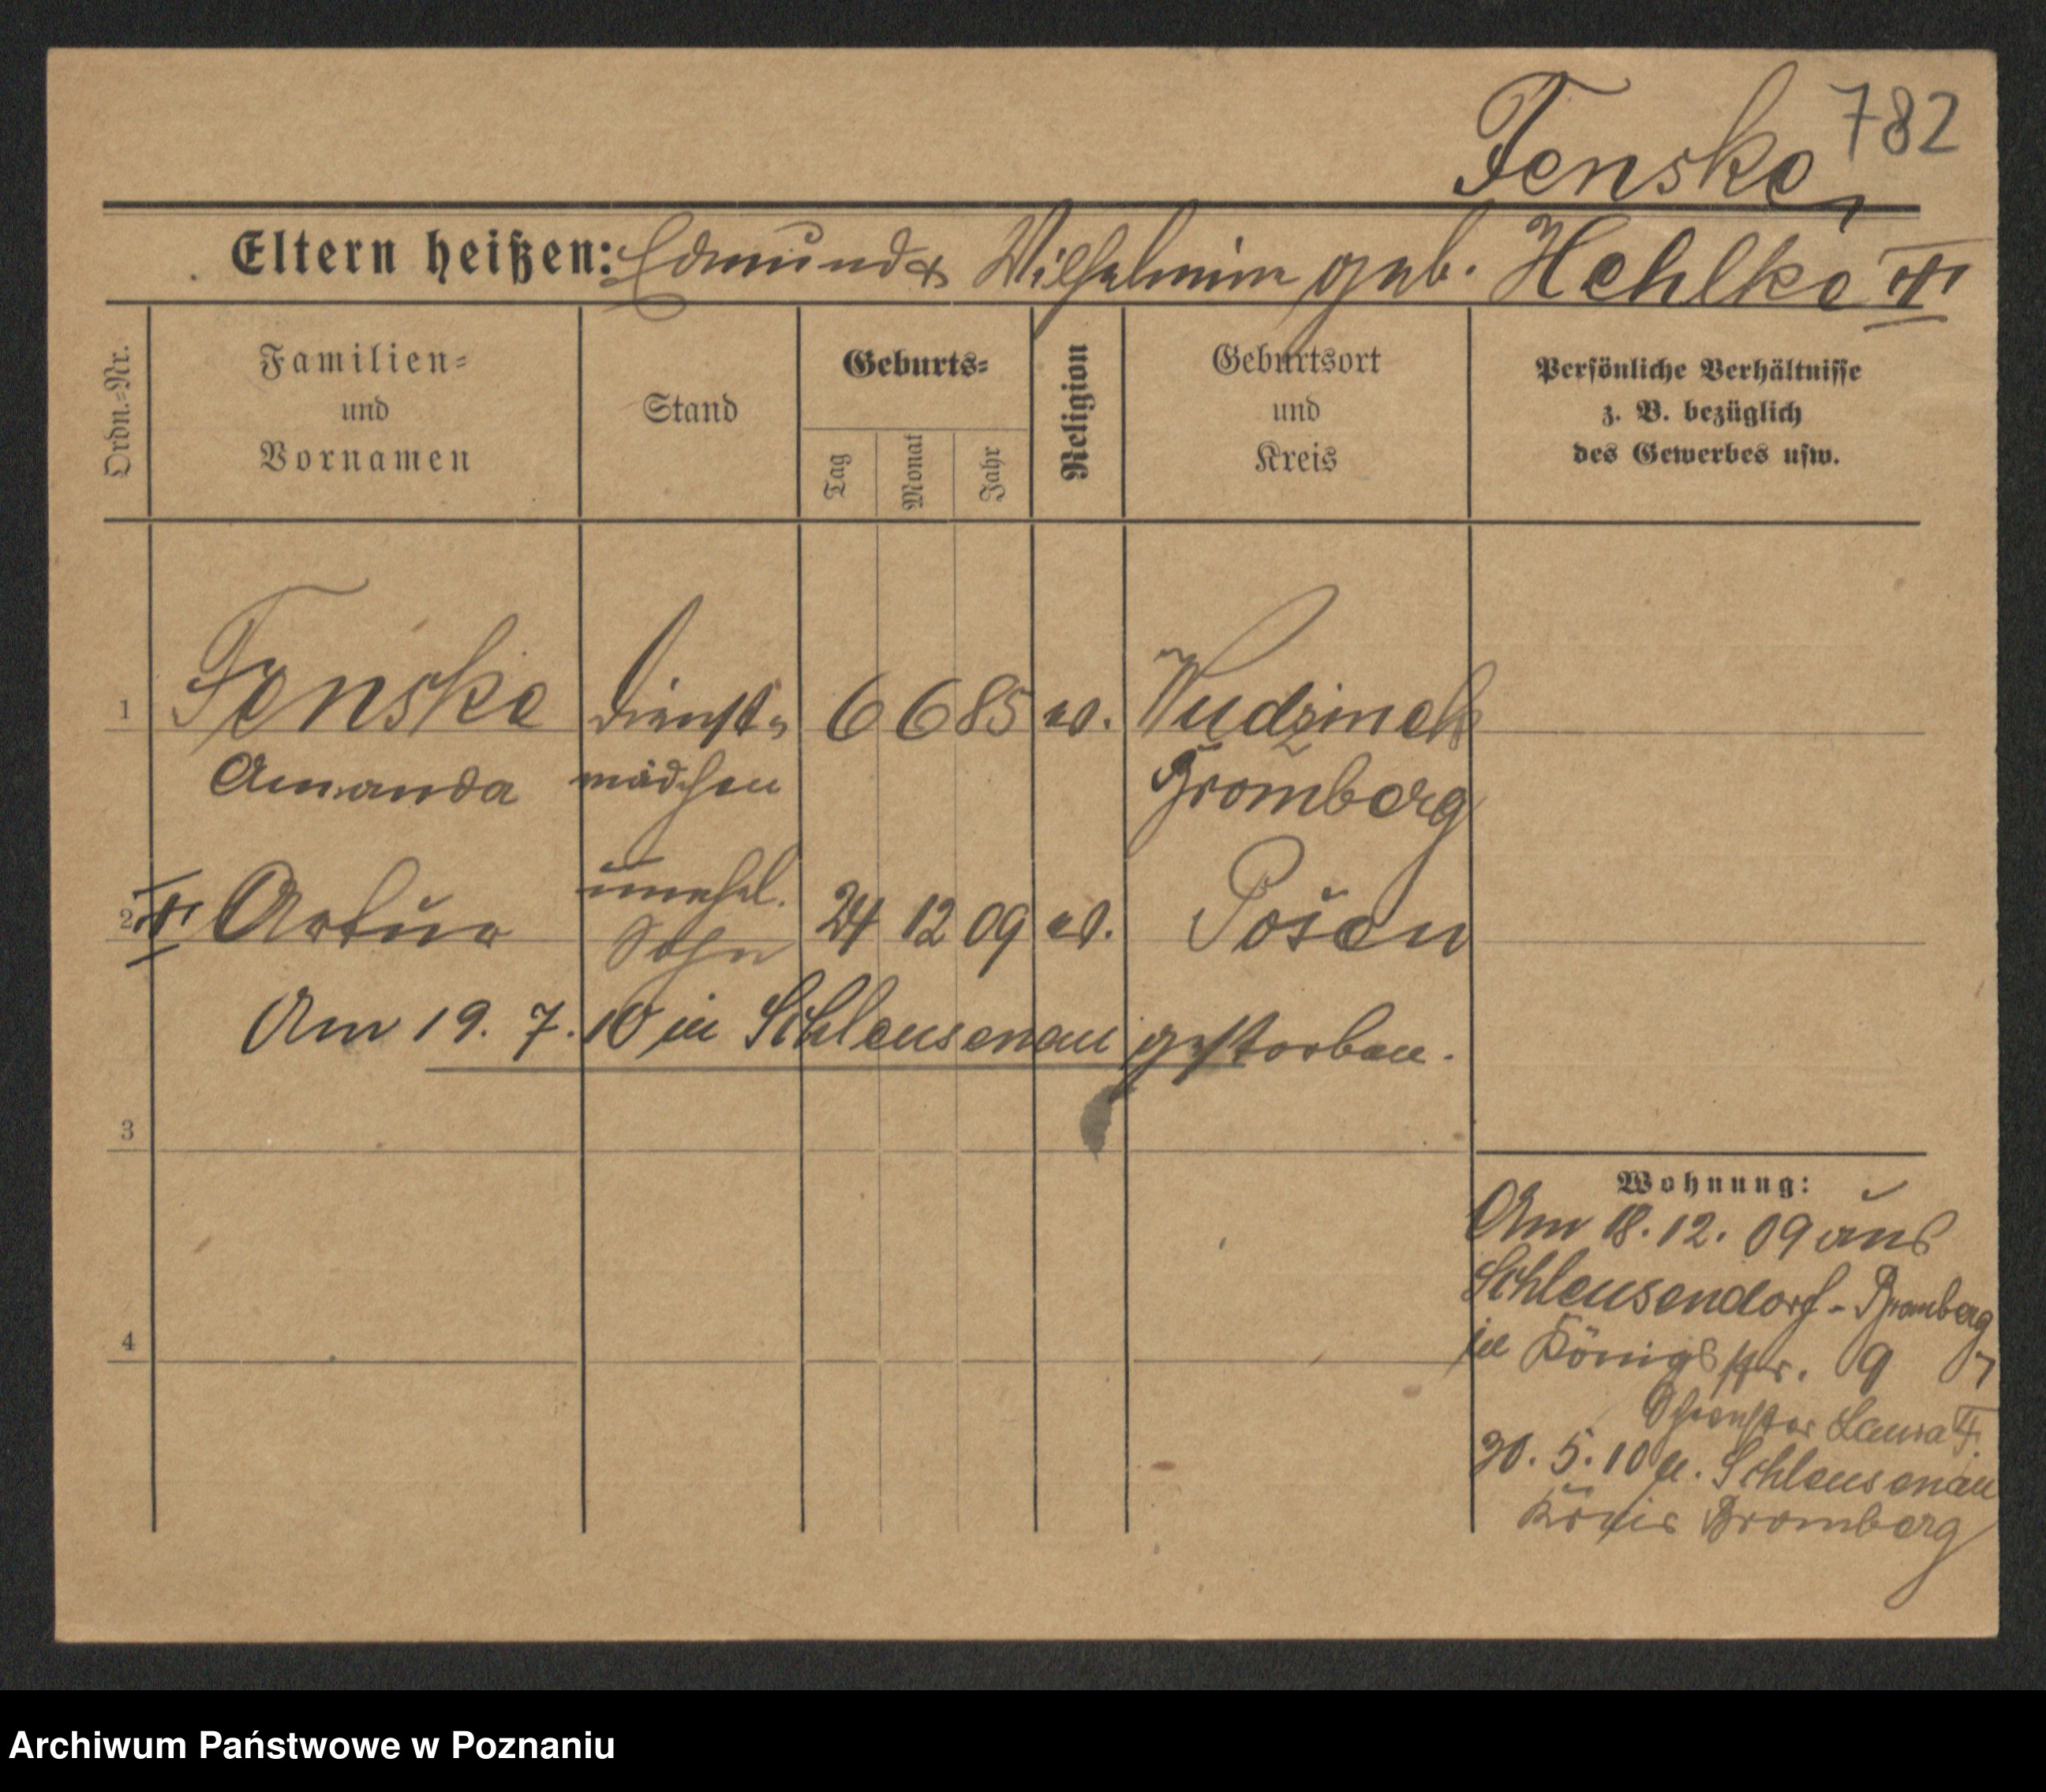 782
Fenske,
Eltern heißen: Edmund & Wilhelmine geb. Hehlke
Ordn.-Nr.
Familien-
und
Vornamen
Stand
Geburts-
Tag
Monat
Jahr
Religion
Geburtsort
und
Kreis
Persönliche Verhältnisse
z. B. bezüglich
des Gewerbes usw.
1 Fenske Dienst- 6 6 85 ev. Wudzinek
Amanda mädchen Bromberg
2 Artur unehel. 24 12 09 ev. Posen
Sohn
Am 19. 7. 10 in Schleusenau gestorben.
3
4
Wohnung:
Am 18. 12. 09 aus
Schleusendorf - Bromberg
in Königstr. 9
Laura F.
30. 5. 10 n. Schleusenau
Kreis Bromberg
Archiwum Państwowe w Poznaniu